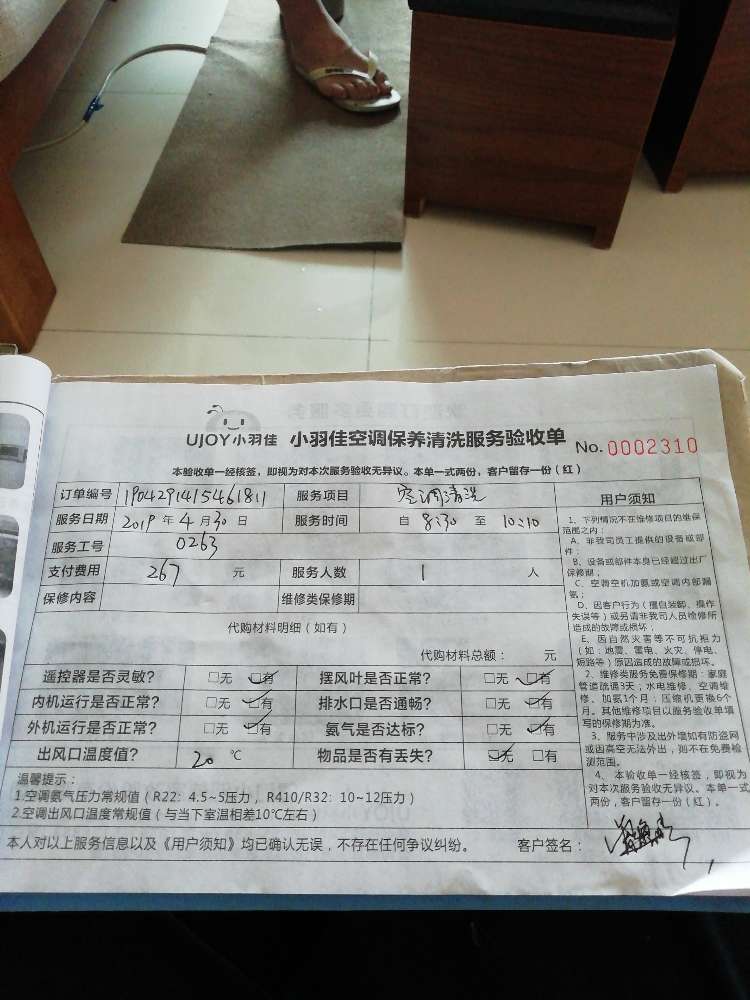 UJOY小羽佳 小羽佳空调保养清洗服务验收单 No. 0002310
本验收单一经核签，即视为对本次服务验收无异议。本单一式两份，客户留存一份（红）
订单编号 1904291415461811 服务项目 空调清洗
服务日期 2019 年 4 月 30 日 服务时间 自 8:30 至 10:10
服务工号 0263
支付费用 267 元 服务人数 1 人
保修内容 维修类保修期
代购材料明细（如有）
代购材料总额： 元
遥控器是否灵敏？ □无 ☑有 摆风叶是否正常？ □无 ☑有
内机运行是否正常？ □无 ☑有 排水口是否通畅？ □无 ☑有
外机运行是否正常？ □无 ☑有 氨气是否达标？ □无 ☑有
出风口温度值？ 20 ℃ 物品是否有丢失？ ☑无 □有
温馨提示：
1.空调氨气压力常规值（R22：4.5~5压力，R410/R32：10~12压力）
2.空调出风口温度常规值（与当下室温相差10℃左右）
本人对以上服务信息以及《用户须知》均已确认无误，不存在任何争议纠纷。 客户签名：
用户须知
1、下列情况不在维修项目的维保
范围之内：
A、非我司员工提供的设备或部
件；
B、设备或部件本身已经超过出厂
保修期；
C、空调空机加氨或空调内部漏
氨；
D、因客户行为（擅自装卸、操作
失误等）或另请非我司人员检修所
造成的故障或损坏；
E、因自然灾害等不可抗拒力
（如：地震、雷电、火灾、停电、
短路等）原因造成的故障或损坏。
2、维修类服务免费保修期：家庭
管道疏通3天；水电维修、空调维
修、加氨1个月；压缩机更换6个
月。其他维修项目以服务验收单填
写的保修期为准。
3、服务中涉及出外墙如有防盗网
或因高空无法外出，则不在免费检
测范围。
4、本验收单一经核签，即视为
对本次服务验收无异议。本单一式
两份，客户留存一份（红）。